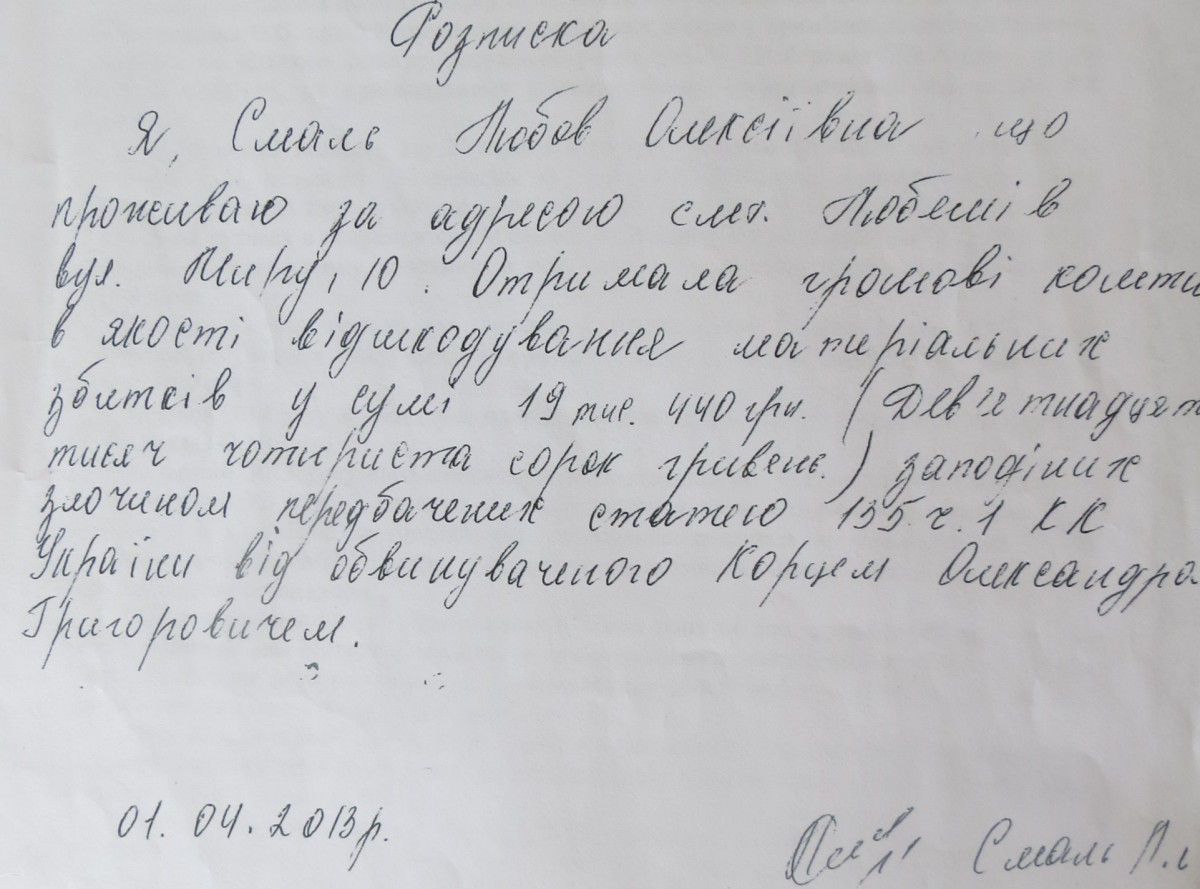 Розписка
Я, Смаль Любов Олексіївна що
проживаю за адресою смт. Любешів
вул. Миру, 10. Отримала громові кошти
в якості відшкодування матеріальних
збитків у сумі 19 тис. 440 грн. (Дев'ятнадцят
тисяч чотириста сорок гривень.) заподіних
злочином передбачених статею 135 ч. 1 КК
України від обвинуваченого Корцем Олександра
Григоровичем.
01. 04. 2013р.
Смаль Л.